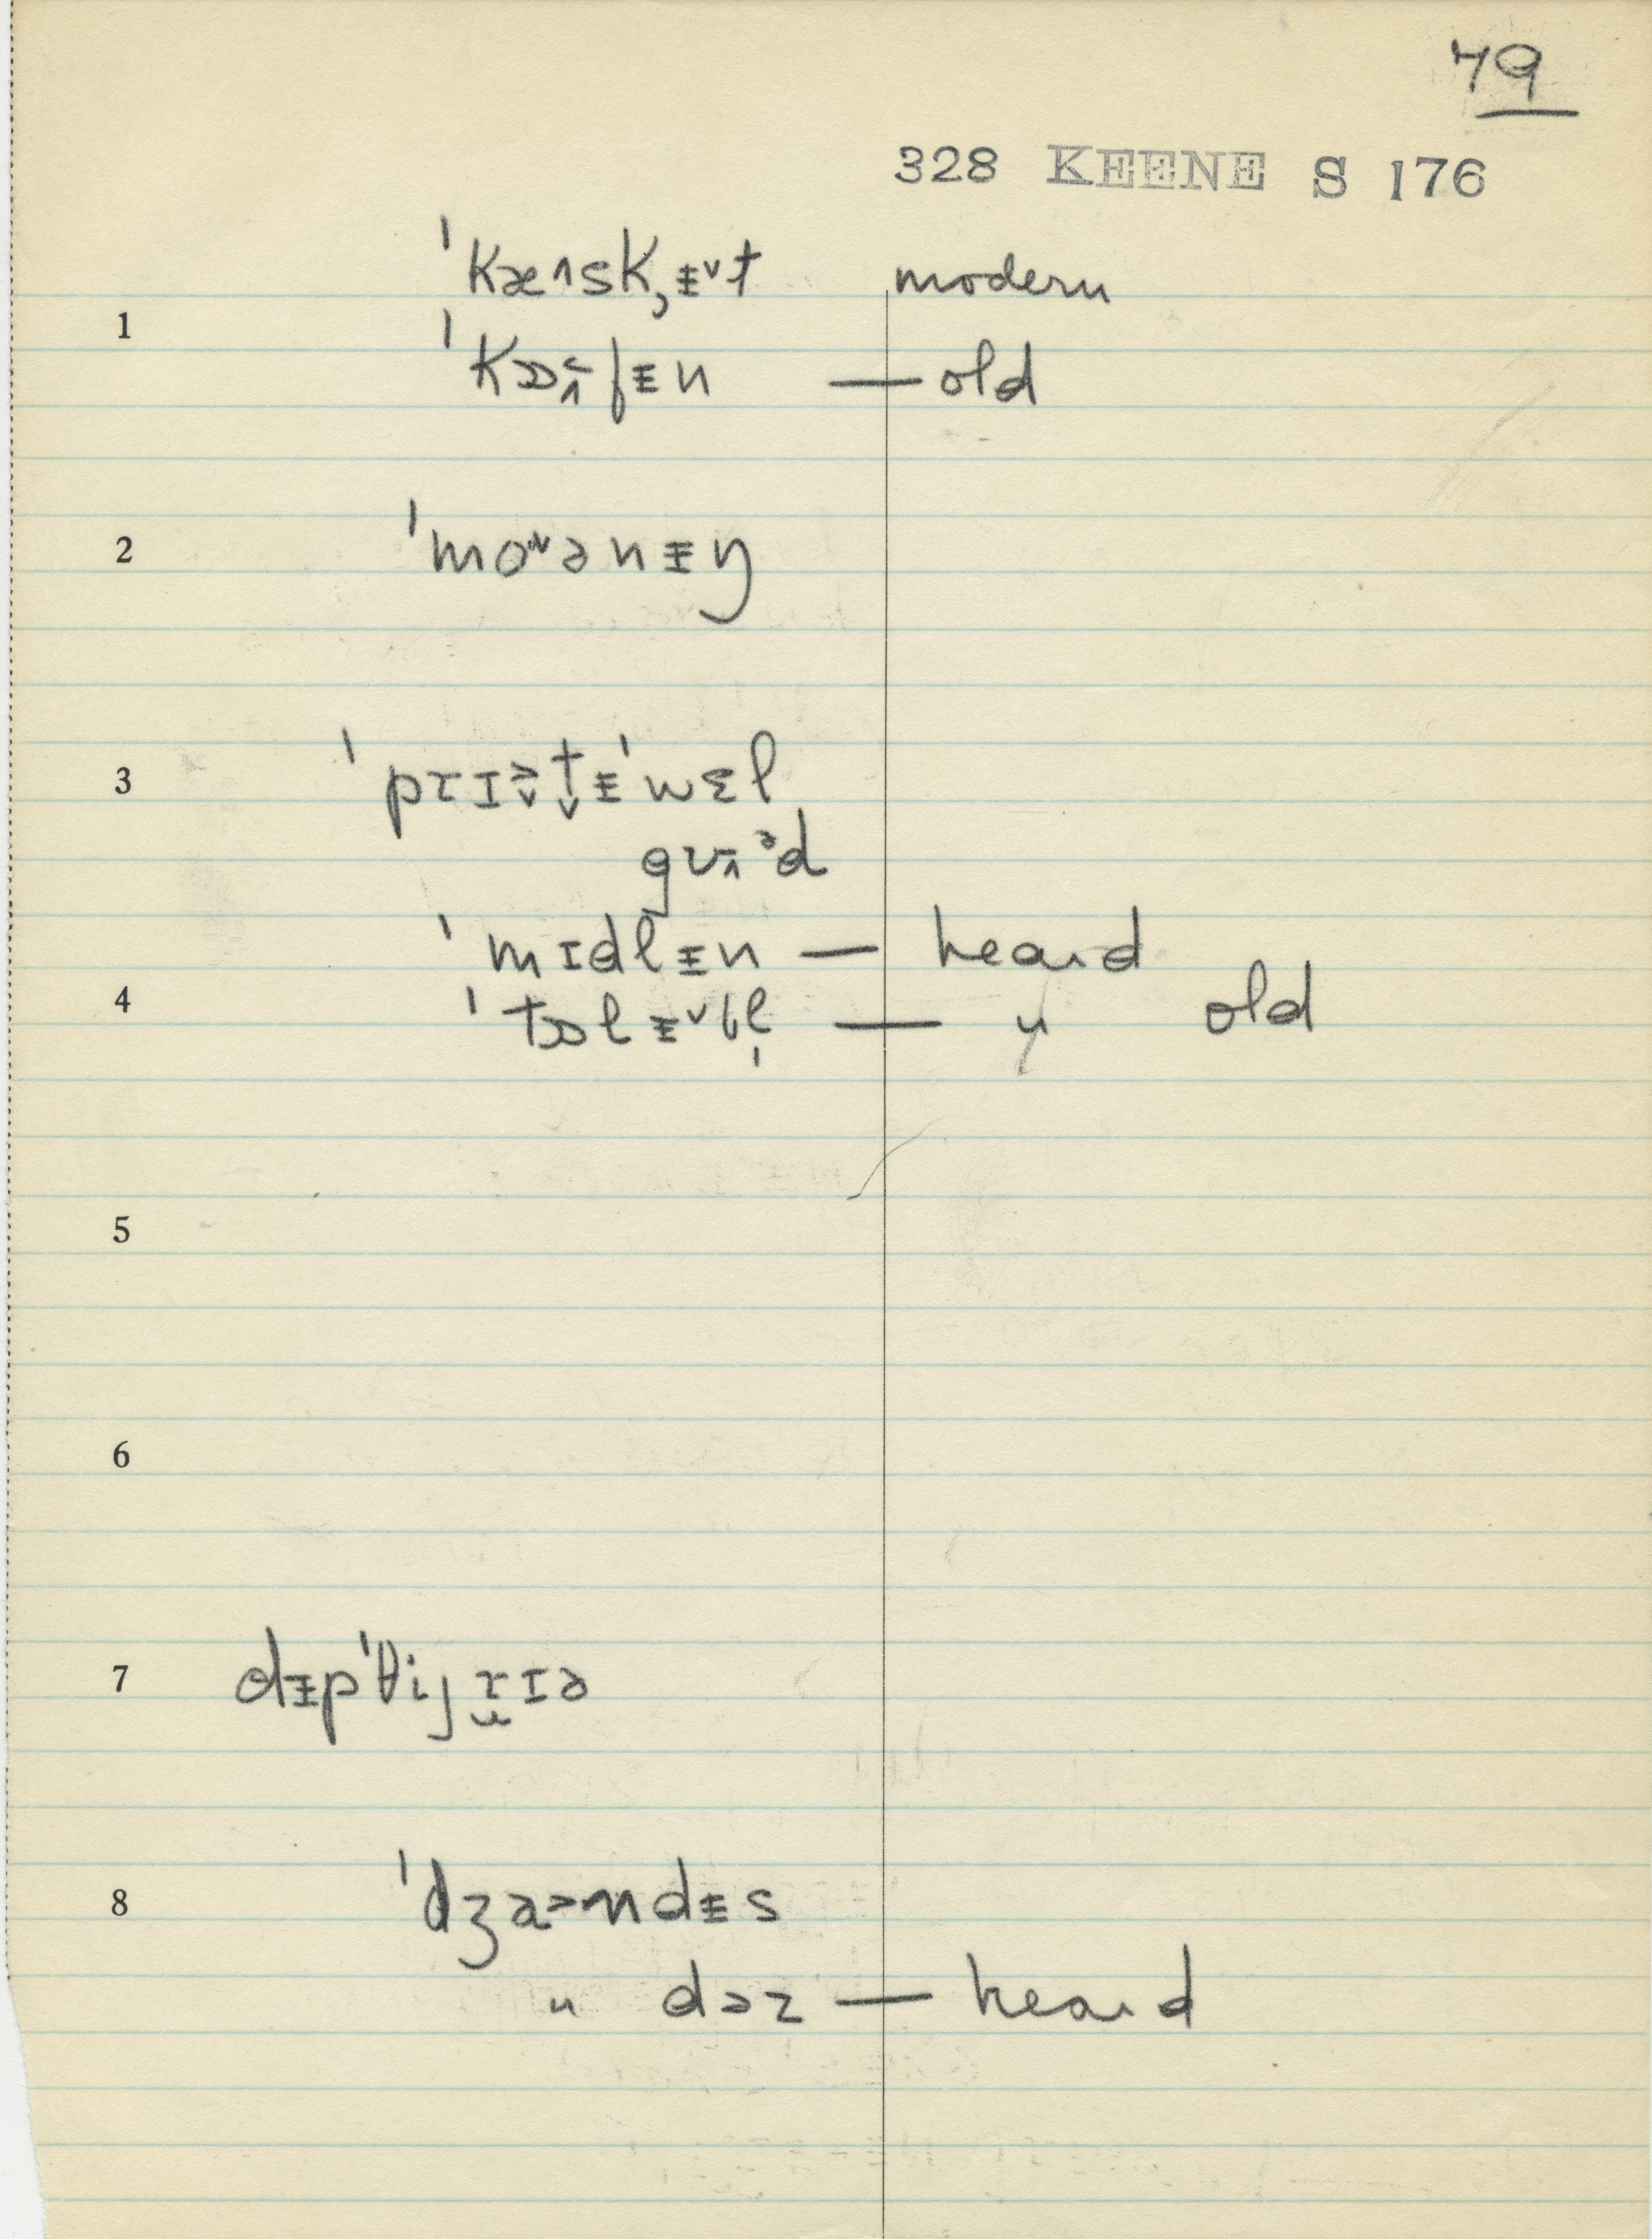 79
328 KEENE S 176
ˈkæ˄sk,ᵻ˅t modern
1
ˈkɒfᵻn — old
2 ˈmoənᵻŋ
3 ˈprɪətᵻˈwɛl
gud
ˈmɪdlᵻn — heard
4 ˈtɒlᵻ˅bl̩ — " old
5
6
7 dᵻpˈθijrɪə
8 ˈdʒa˃ndᵻs
" dəz — heard